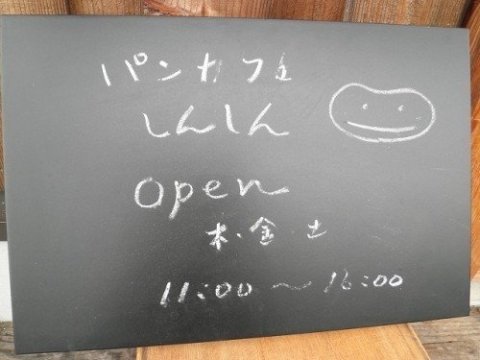 パンカフェ
しんしん
open
木・金 土
11:00～16:00